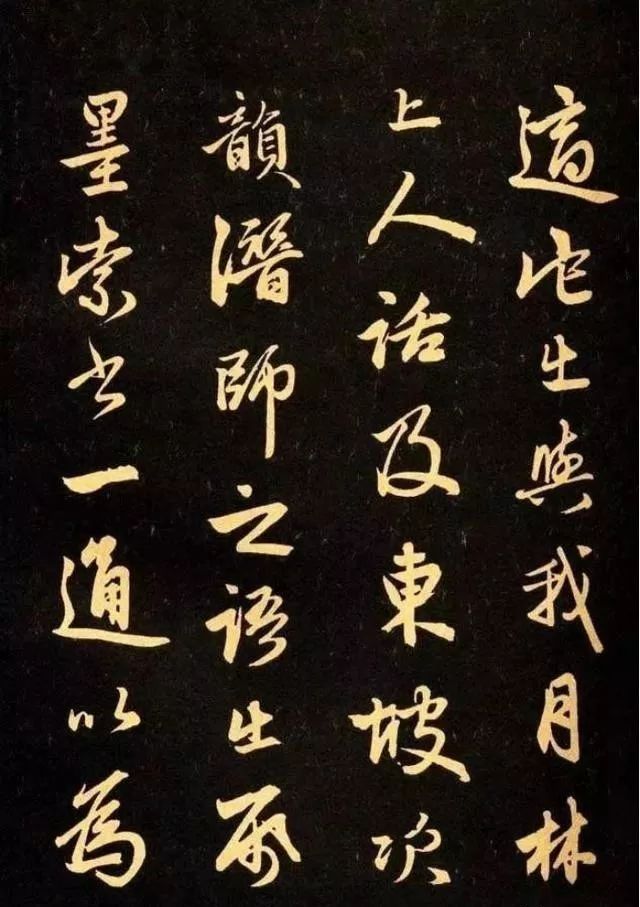 適生與我月林
上人話及東坡次
韻潛師之語生
墨索書一通以為